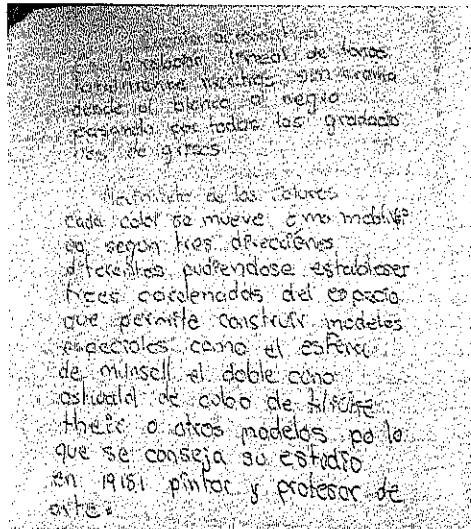 la relacion lineal de tonos
totalmente neutros sin croma
desde el blanco al negro
pasando por todas las gradacio
nes de grises
de los colores
cada color se mueve
segun tres direcciones
diferentes pudiendose establecer
trees cordenadas del espacio
que permite construir modelos
especiales como el esfera
de munsell el doble cono
ostwald de cubo de
o otros modelos po lo
que se conseja su estudio
en 19181 pintor y profesor de
arte.